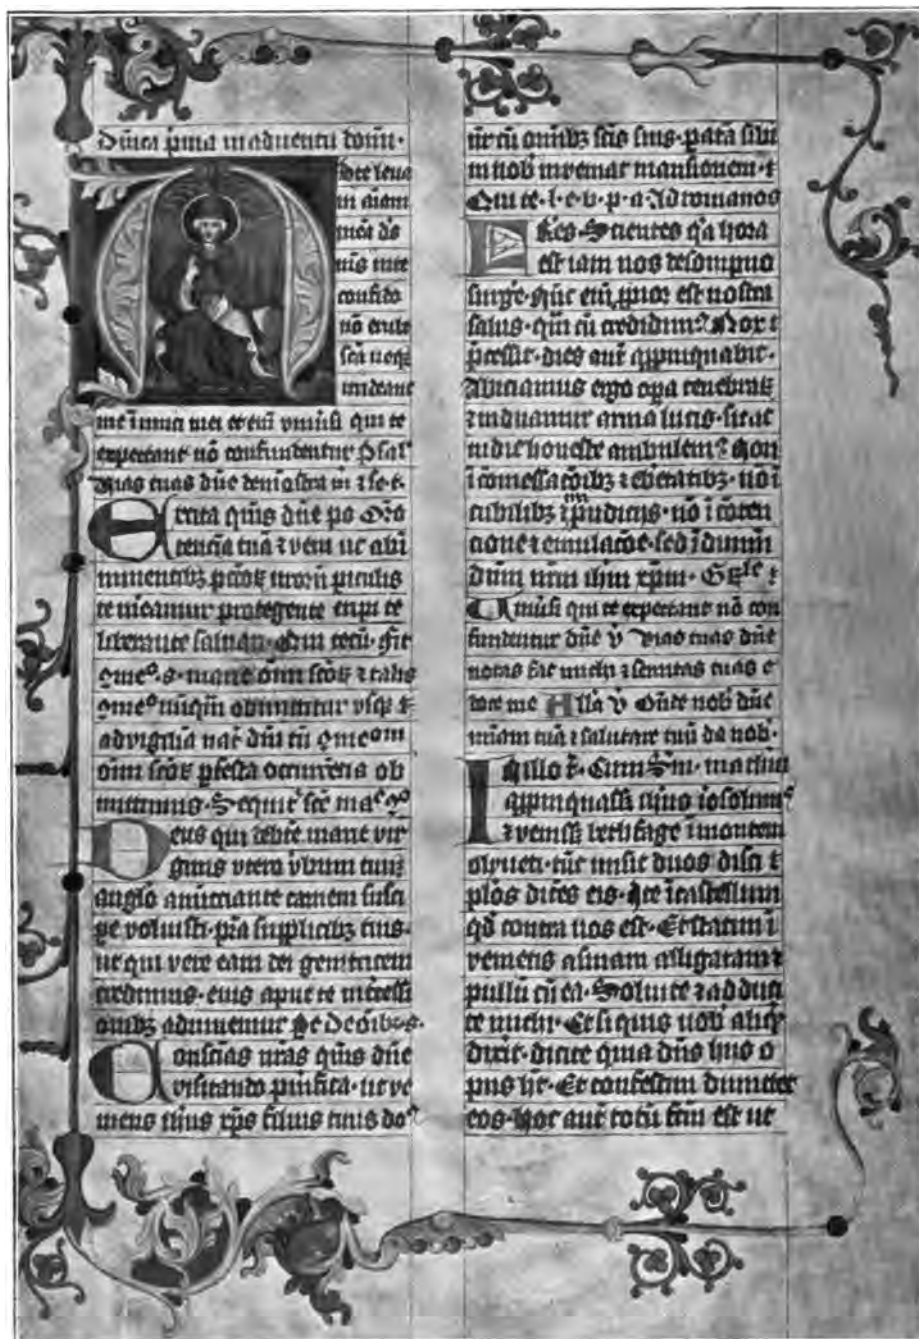 Dnica prima in adventu domi·
Ad te leva
vi aiam
meã ds
us me
confido
nõ erube
scã neqz
irrideant
me inimici mei et eñi vniũsi qui te
expectant nõ confundentur Psal
Vias tuas dñe demõstra m̃ ⁊ se t·
Excita qm̃s dñe po Oro
tenciã tuã ⁊ veni ut abĩ
minentibz pctõꝝ nrorũ piculis
te mereamur protegente eripi te
liberante salvari· Qui tecũ·
s· marie oĩm scõꝝ ⁊ talis
nũqm̃ obmittitur vsqz
ad vigiliã nat̃ dñi cũ
oĩm scõꝝ pfesta occurrẽcia ob
mittimus· Sequit̃ sc̃e
Deus qui de bte marie vir
ginis vtero v̾bum tuũ
anglo anũciante carnem susci
pe voluisti· pr̃a supplicibz tuis·
ut qui vere eam dei genitricem
credimus· eius aput te int̾cessi
onibz adiuuemur
Consciẽcias nr̃as qm̃s dñe
visitando purifica· ut ve
niens ihus xps filius tuus do
nr̃ cũ omibz scis suis· paratã sibi
in nob inveniat mansionem·
Qui te· l· e· v· p· a· Ad romanos
Fr̃es· Scientes qa hora
est iam nos de sompno
surge· Nũc eñi ppior est nostra
salus· qm̃ cũ credidim⁹ Nox
pcessit· dies aut̃ appinquabit·
Abiciamus ergo opa tenebraꝝ
⁊ induamur arma lucis· sicut
in die honeste ambulem⁹ Non
ĩ comessacõibz ⁊ ebrietatibz· nõ ĩ
cubilibz ⁊ ĩpudicijs· nõ ĩ conten
cione ⁊ emulacõe· sed ĩduimĩ
dñm nr̃m ihm xpm·
Vniũsi qui te expectant nõ con
fundentur dñe v̾ Vias tuas dñe
notas fac michi ⁊ semitas tuas e
doce me Alla v̾ Onde nob dñe
mĩam tuã ⁊ salutare tuũ da nob·
In illo t̾· Cum Scđm· matheũ
appinquasset ihus iosolimis
⁊ venisset bethfage ĩ montem
olyueti· tũc misit duos disci
plos dices eis· Ite ĩ castellum
qd contra uos est· Et statim ĩ
venietis asinam alligatam ⁊
pullũ cũ ea· Soluite ⁊ adduci
te michi· Et si quis uob aliqd
dixit· dicite quia dñs hijs o
pus ht· Et confestim dimittet
eos· Hoc aut̃ totũ fcm̃ est ut